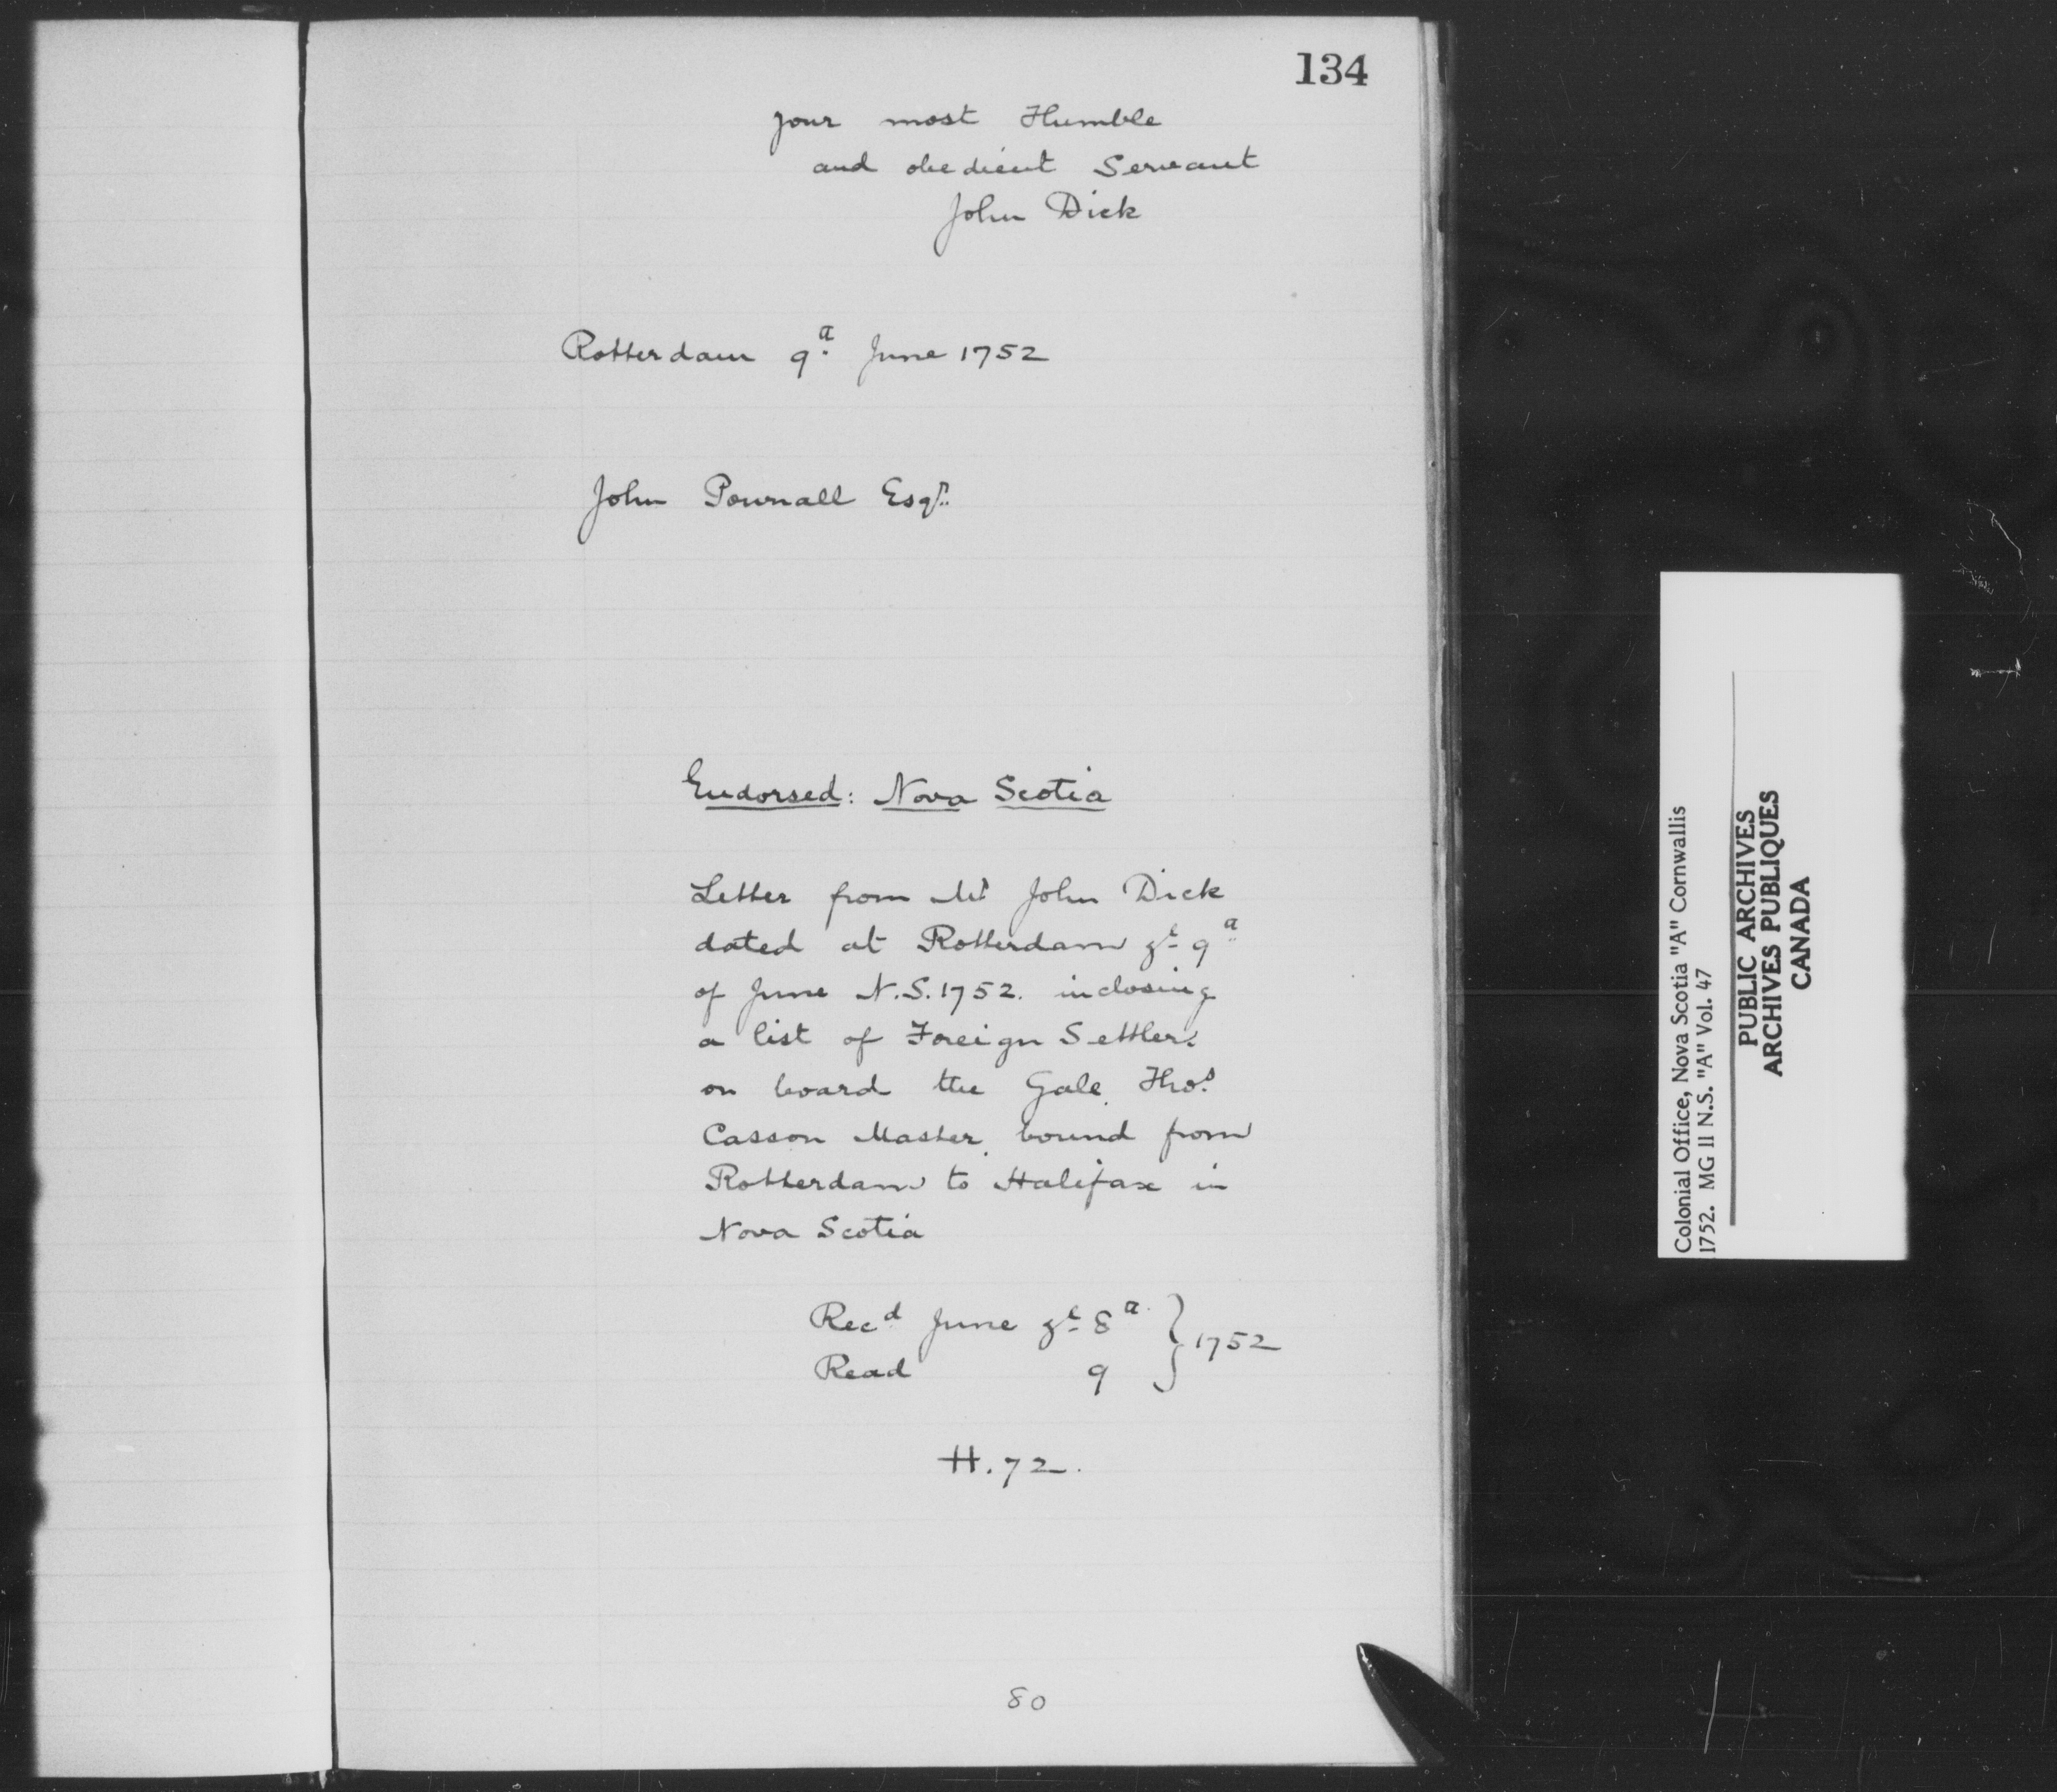 134
your most Humble
and obedient Servant
John Dick
Rotterdam 9th June 1752
John Pownall Esqr.
Endorsed: Nova Scotia
Letter from Mr John Dick
dated at Rotterdam ye 9th
of June N.S. 1752. inclosing
a list of Foreign Settlers
on board the Gale, Thos.
Casson Master, bound from
Rotterdam to Halifax in
Nova Scotia
Recd June ye 8th } 1752
Read 9
H.72.
80
Colonial Office, Nova Scotia "A" Cornwallis
1752. MG II N.S. "A" Vol. 47
PUBLIC ARCHIVES
ARCHIVES PUBLIQUES
CANADA